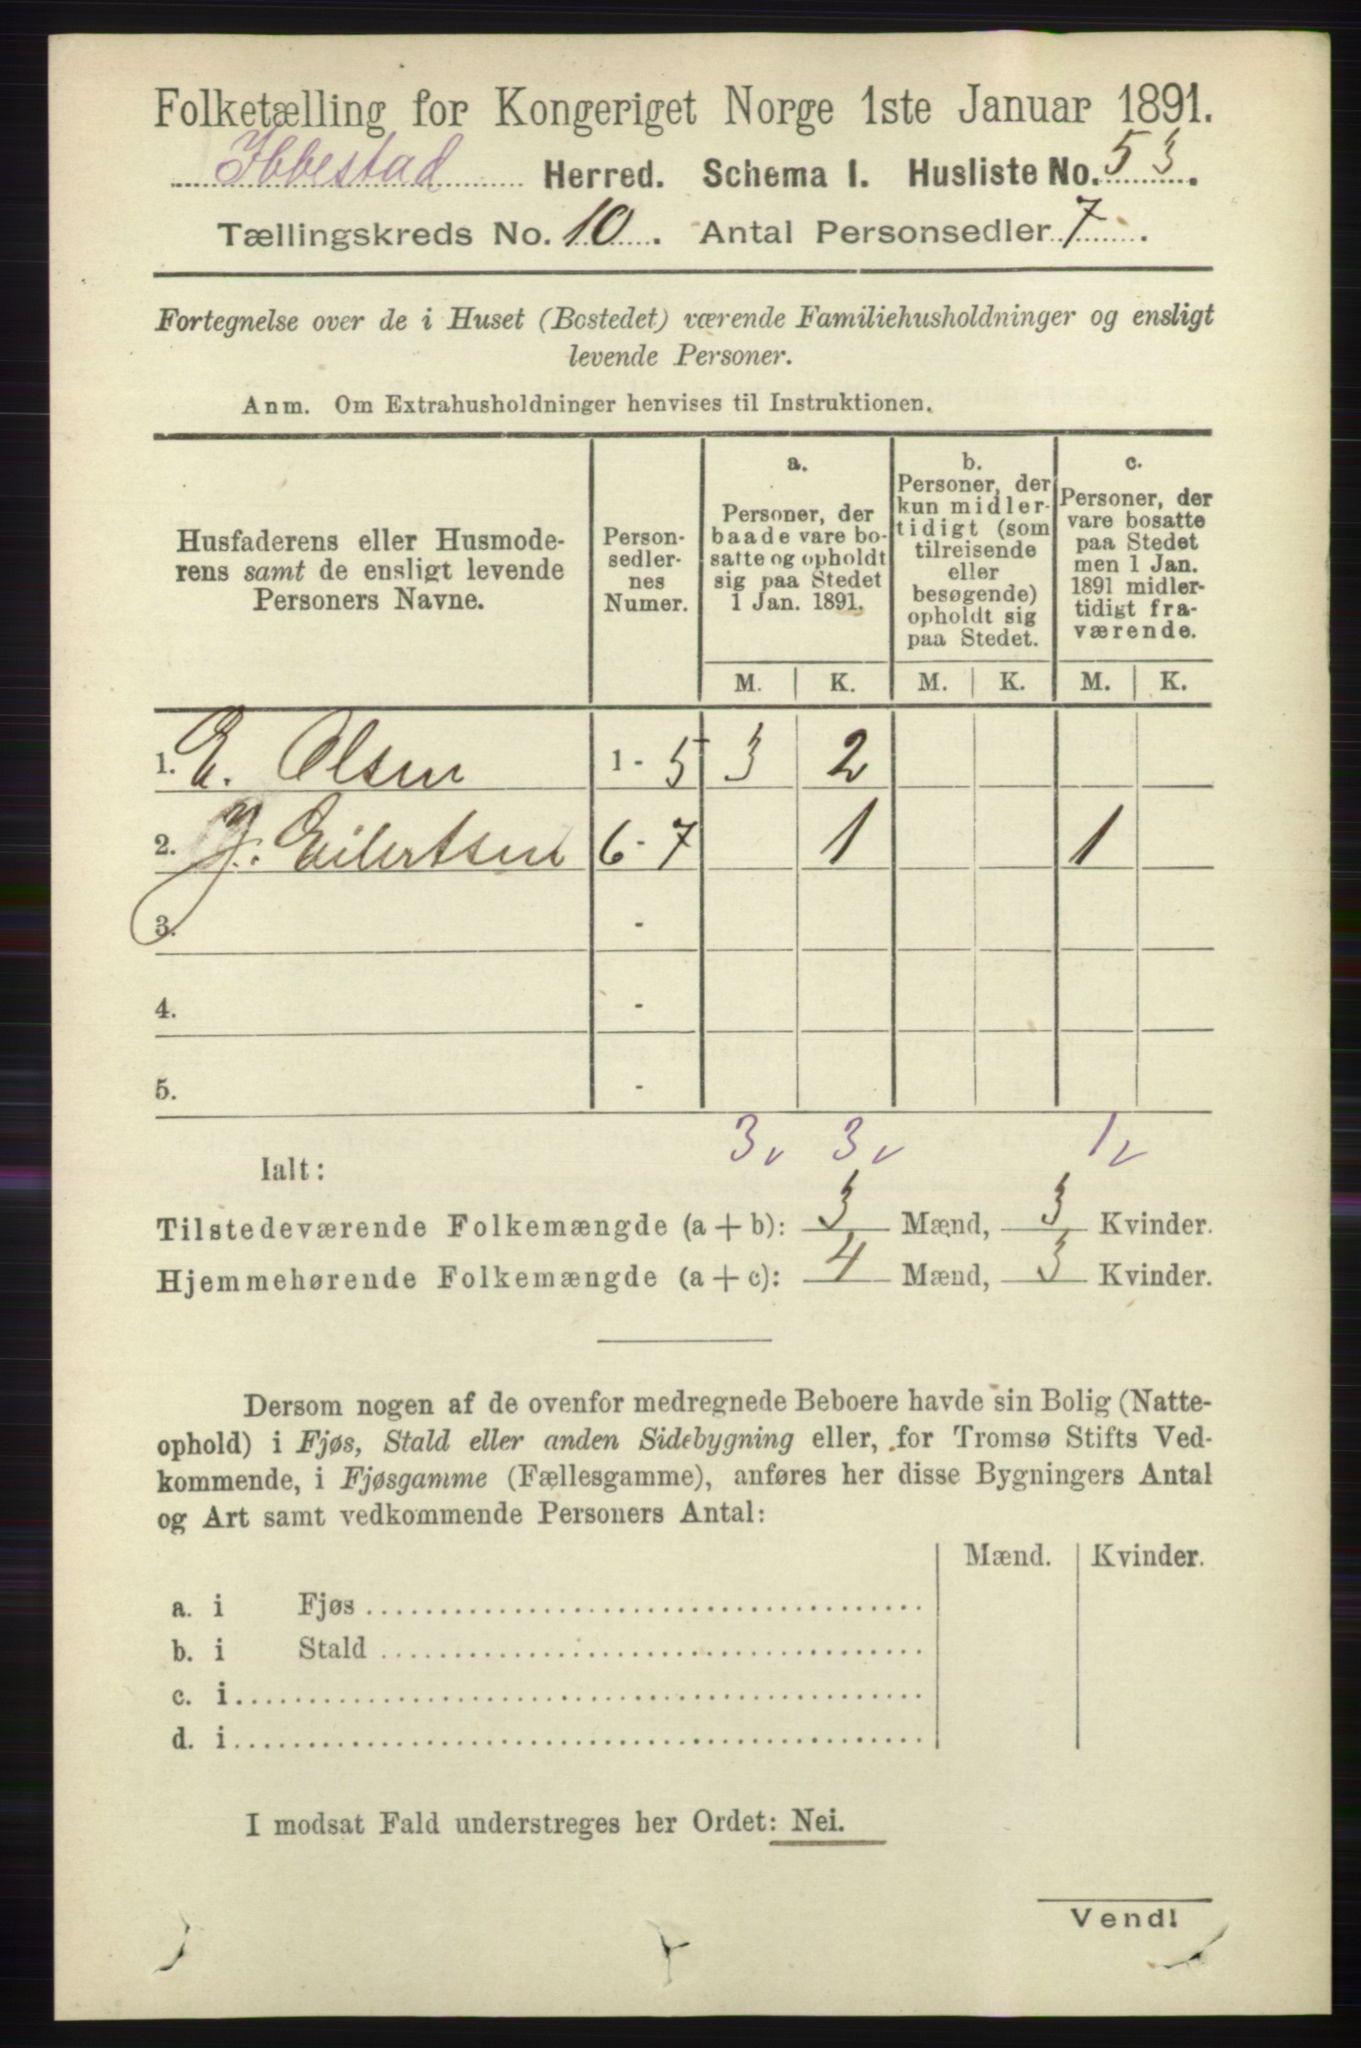 Folketælling for Kongeriget Norge 1ste Januar 1891.
Ibbestad Herred. Schema I. Husliste No. 53.
Tællingskreds No. 10. Antal Personsedler 7.
Fortegnelse over de i Huset (Bostedet) værende Familiehusholdninger og ensligt
levende Personer.
Anm. Om Extrahusholdninger henvises til Instruktionen.
Husfaderens eller Husmode-
rens samt de ensligt levende
Personers Navne.
Person-
sedler-
nes
Numer.
a.
Personer, der
baade vare bo-
satte og opholdt
sig paa Stedet
1 Jan. 1891.
b.
Personer, der
kun midler-
tidigt (som
tilreisende
eller
besøgende)
opholdt sig
paa Stedet.
c.
Personer, der
vare bosatte
paa Stedet
men 1 Jan.
1891 midler-
tidigt fra-
værende.
M. K. M. K. M. K.
1. E. Olsen 1 - 5 3 2
2. J. Eilertsen 6 - 7 1 1
3. -
4. -
5. -
3v 3v 1v
Ialt:
Tilstedeværende Folkemængde (a + b): 3 Mænd, 3 Kvinder.
Hjemmehørende Folkemængde (a + c): 4 Mænd, 3 Kvinder.
Dersom nogen af de ovenfor medregnede Beboere havde sin Bolig (Natte-
ophold) i Fjøs, Stald eller anden Sidebygning eller, for Tromsø Stifts Ved-
kommende, i Fjøsgamme (Fællesgamme), anføres her disse Bygningers Antal
og Art samt vedkommende Personers Antal:
Mænd. Kvinder.
a. i Fjøs
b. i Stald
c. i
d. i
I modsat Fald understreges her Ordet: Nei.
Vend!